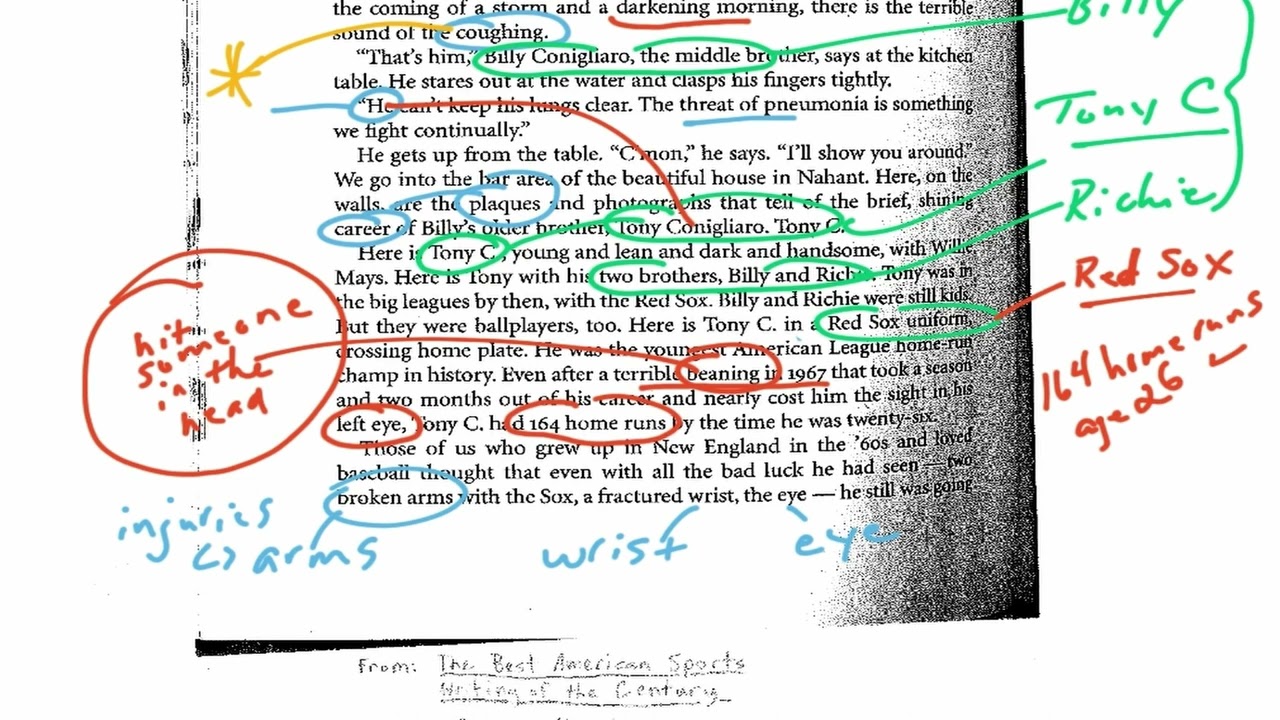 the coming of a storm and a darkening morning, there is the terrible
sound of the coughing.
"That's him," Billy Conigliaro, the middle brother, says at the kitchen
table. He stares out at the water and clasps his fingers tightly.
"He can't keep his lungs clear. The threat of pneumonia is something
we fight continually."
He gets up from the table. "C'mon," he says. "I'll show you around."
We go into the bar area of the beautiful house in Nahant. Here, on the
walls, are the plaques and photographs that tell of the brief, shining
career of Billy's older brother, Tony Conigliaro. Tony C.
Here is Tony C., young and lean and dark and handsome, with Willie
Mays. Here is Tony with his two brothers, Billy and Richie. Tony was in
the big leagues by then, with the Red Sox. Billy and Richie were still kids.
But they were ballplayers, too. Here is Tony C. in a Red Sox uniform,
crossing home plate. He was the youngest American League home-run
champ in history. Even after a terrible beaning in 1967 that took a season
and two months out of his career and nearly cost him the sight in his
left eye, Tony C. had 164 home runs by the time he was twenty-six.
Those of us who grew up in New England in the '60s and loved
baseball thought that even with all the bad luck he had seen — two
broken arms with the Sox, a fractured wrist, the eye — he still was going
Billy
Tony C
Richie
Red Sox
164 home runs
age 26
hit
someone
in the
head
injuries
arms
wrist
eye
From: The Best American Sports
Writing of the Century